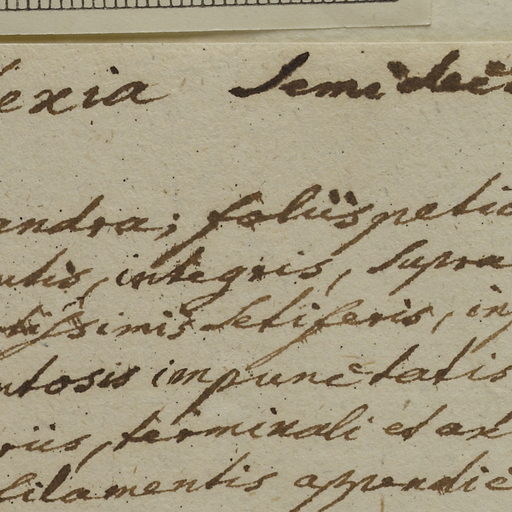 lexia Semidec
andra; foliis petio
utis, integris, supra
tissimis setiferis, in
ntosis impunctatis
riis, terminali et ax
filamentis appendic